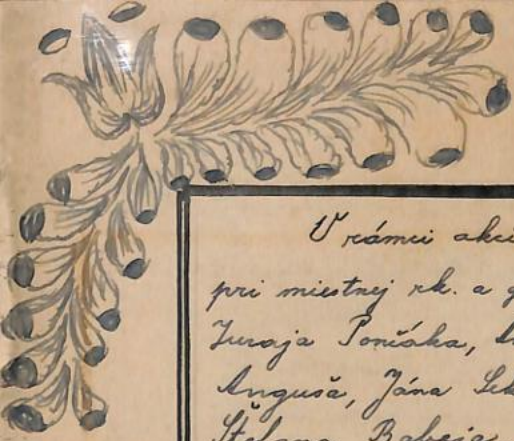 V rámci akci
pri miestnej rk. a g
Juraja Pončáka,
Anguša, Jána
Štefana Baleja